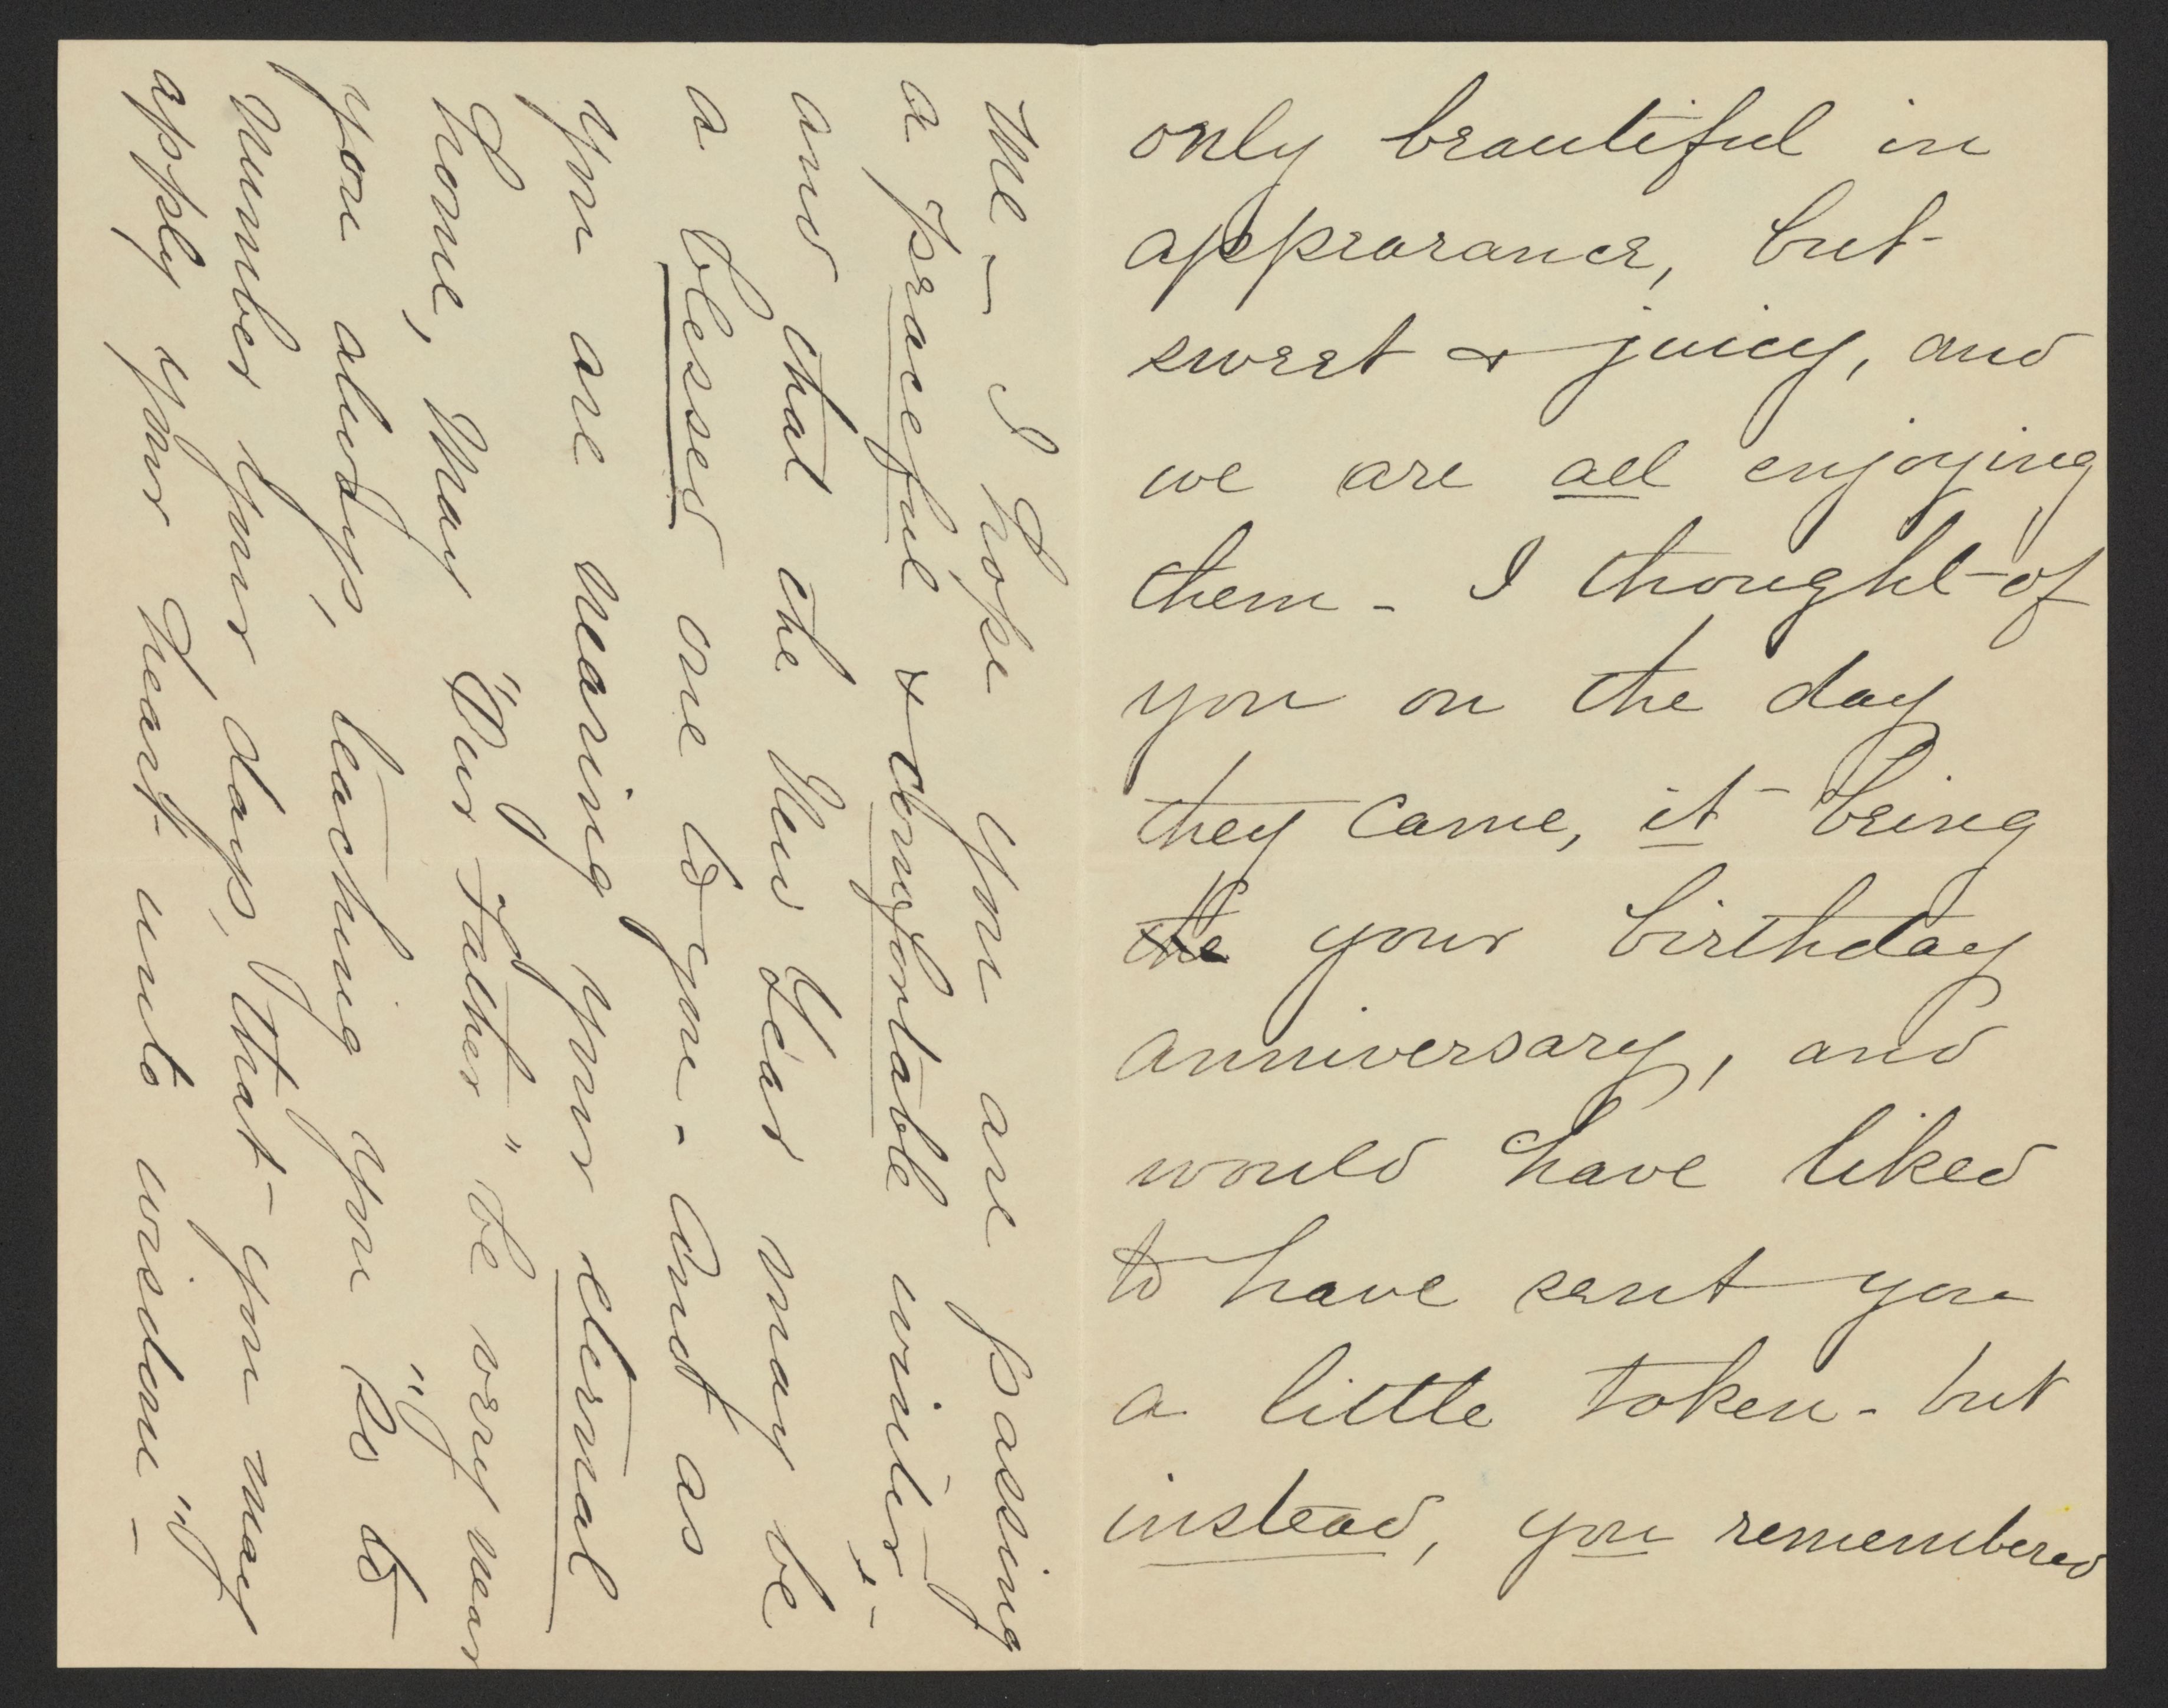 only beautiful in
appearance, but
sweet & juicy, and
we are all enjoying
them - I thought of
you on the day
they came, it being
the your birthday
anniversary, and
would have liked
to have sent you
a little token - but
instead, you remembered
me - I hope you are passing
a peaceful & comfortable winter -
and that the New Year may be
a blessed one to you - And as
you are nearing your eternal
home, may "Our Father" be very near
you always, teaching you "so to
number your days, that you may
apply your heart unto wisdom" -